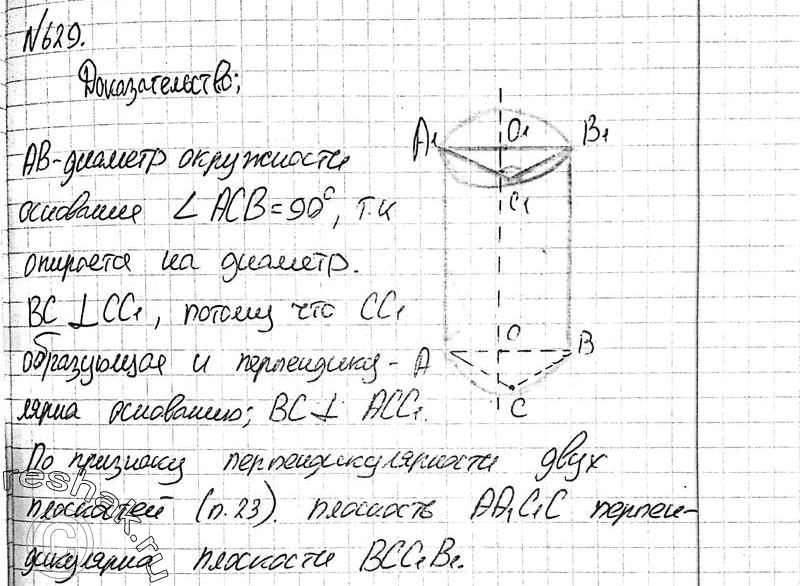 №629.
Доказательство;
AB-диаметр окружности
основания ∠ ACB=90°, т.к
опирается на диаметр.
BC ⊥ CC₁, потому что CC₁
образующая и перпендику-
лярна основанию; BC ⊥ ACC₁.
По признаку перпендикулярности двух
плоскостей (п.23). плоскость AA₁C₁C перпен-
дикулярна плоскости BCC₁B₁.
A₁ O₁ B₁
C₁
O
A B
C
reshak.ru
©